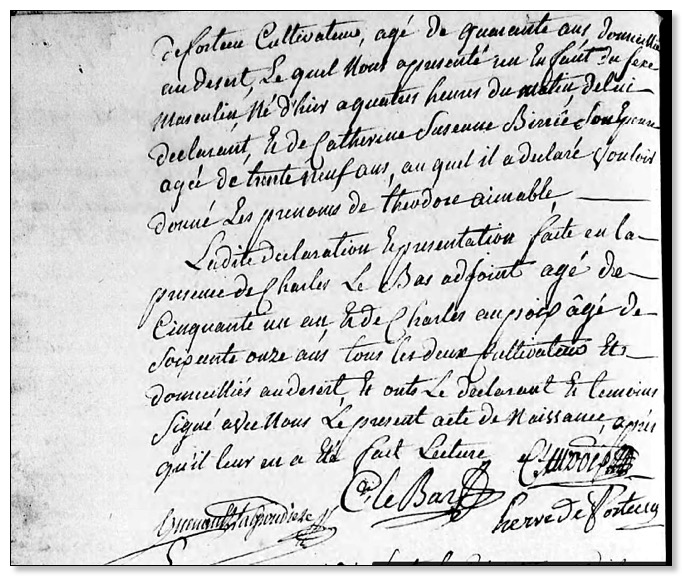 deforteau Cultivateur, agé de quarante ans domicillié
au desert, Le quel Nous apresenté un Enfánt du sexe
masculin, Né d'hier aquatres heures du matin, deluc
declarant, Et de Catherine Susenne Birrée son Epouse
agée de trente neuf ans, au quel il a declaré vouloir
donné Les prenoms de theodore aimable
Ladite declaration Representation faite en la
presence de Charles Le Bas adjoint agé de
Cinquante un an, Et de Charles auvoix âgé de
soixente onze ans tous les deux Cultivateurs Et
domicilliés audesert, Et onts Le declarant Et temoins
signé avec Nous Le present acte de Naissance, après
qu'il leur en a Eté fait Lecture
C. le Bas
herve de fortecu